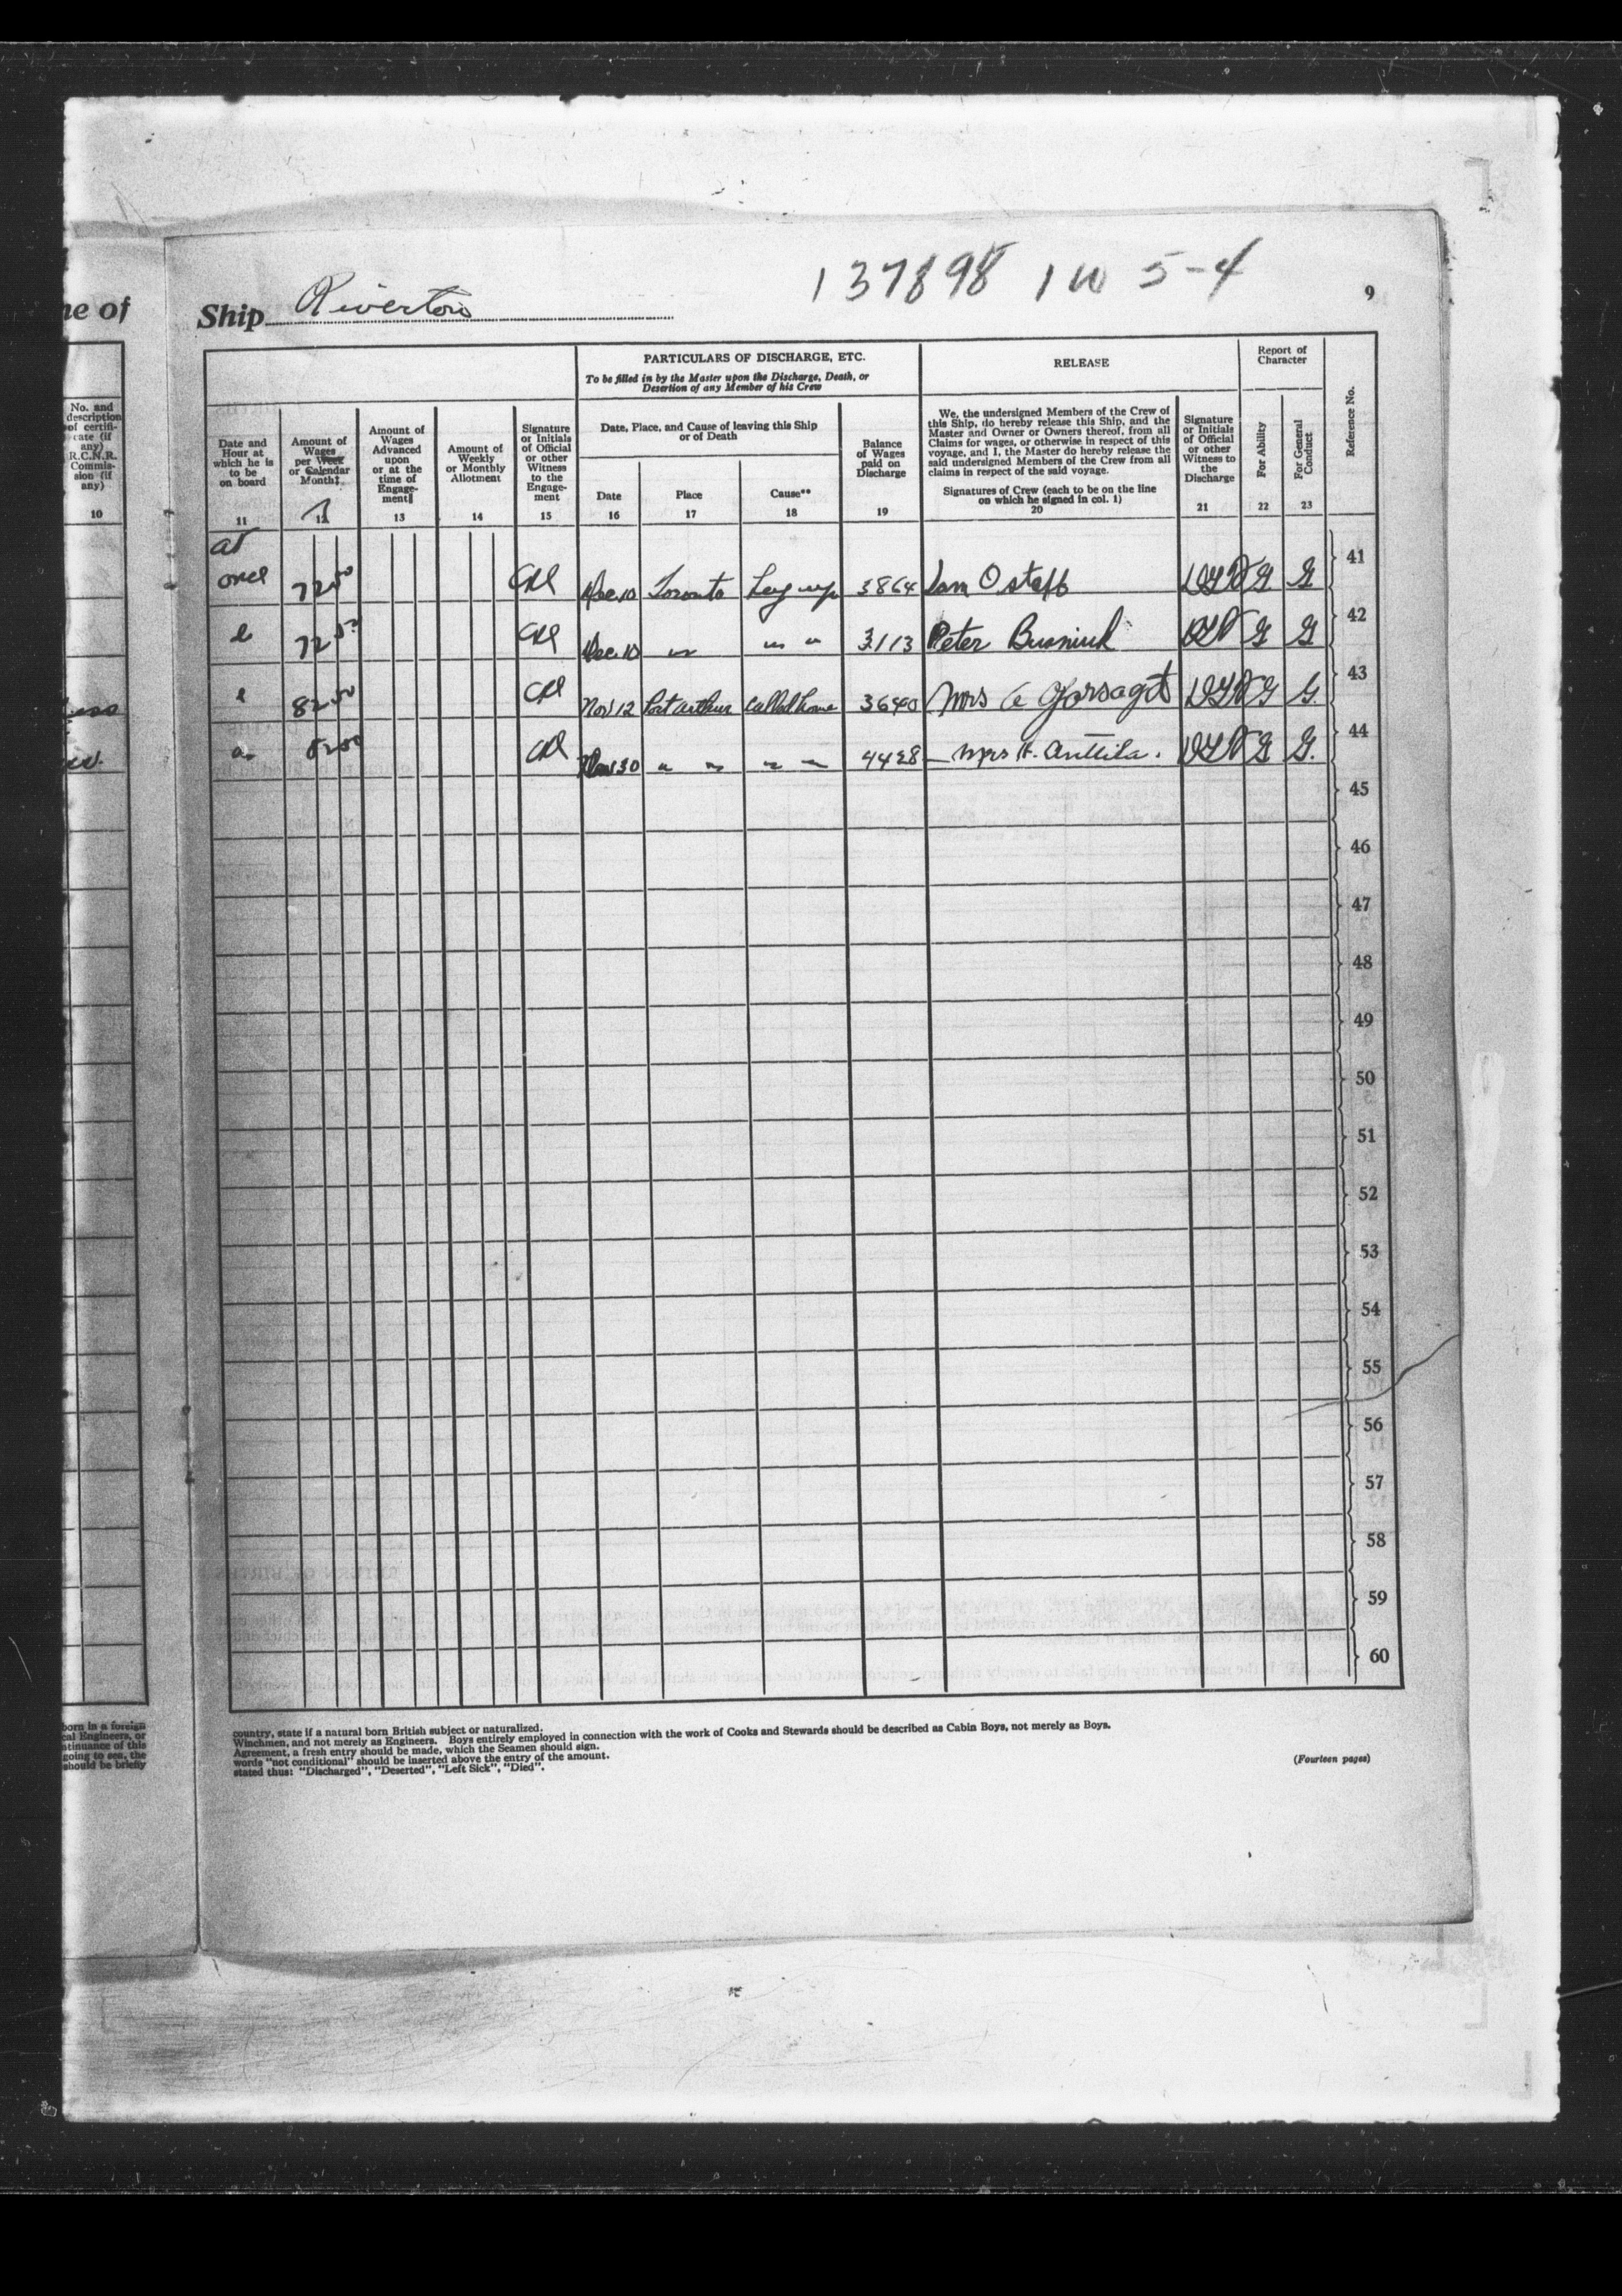 137898 1 W 5-4
9
ne of
Ship Riverton
PARTICULARS OF DISCHARGE, ETC.
To be filled in by the Master upon the Discharge, Death, or
Desertion of any Member of his Crew
RELEASE
Report of
Character
No. and
description
of certifi-
cate (if
any)
R.C.N.R.
Commis-
sion (if
any)
10
Date and
Hour at
which he is
to be
on board
11
Amount of
Wages
per Week
or Calendar
Month‡
12
Amount of
Wages
Advanced
upon
or at the
time of
Engage-
ment‖
13
Amount of
Weekly
or Monthly
Allotment
14
Signature
or Initials
of Official
or other
Witness
to the
Engage-
ment
15
Date, Place, and Cause of leaving this Ship
or of Death
Date
16
Place
17
Cause**
18
Balance
of Wages
paid on
Discharge
19
We, the undersigned Members of the Crew of
this Ship, do hereby release this Ship, and the
Master and Owner or Owners thereof, from all
Claims for wages, or otherwise in respect of this
voyage, and I, the Master do hereby release the
said undersigned Members of the Crew from all
claims in respect of the said voyage.
Signatures of Crew (each to be on the line
on which he signed in col. 1)
20
Signature
or Initials
of Official
or other
Witness to
the
Discharge
21
For Ability
22
For General
Conduct
23
Reference No.
at
once 72 50 Dec 10 Toronto Lay up 38 64 Ostaff G G 41
72 50 Dec 10 " " " 31 13 Peter Busniuk G G 42
82 50 Nov 12 Port Arthur Called home 36 40 Mrs G G. 43
82 50 Nov 30 " " " " 44 28 Mrs H. Anttila. G G. 44
45
46
47
48
49
50
51
52
53
54
55
56
57
58
59
60
born in a foreign
cal Engineers, or
ntinuance of this
going to sea, the
should be briefly
country, state if a natural born British subject or naturalized.
Winchmen, and not merely as Engineers. Boys entirely employed in connection with the work of Cooks and Stewards should be described as Cabin Boys, not merely as Boys.
Agreement, a fresh entry should be made, which the Seamen should sign.
words "not conditional" should be inserted above the entry of the amount.
stated thus: "Discharged", "Deserted", "Left Sick", "Died".
(Fourteen pages)